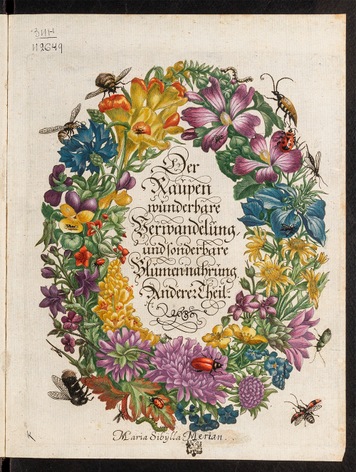 ЗИН
Der
Raupen
wunderbare
Verwandelung,
und sonderbare
Blumennahrung
Anderer Theil.
Maria Sibylla Merian.